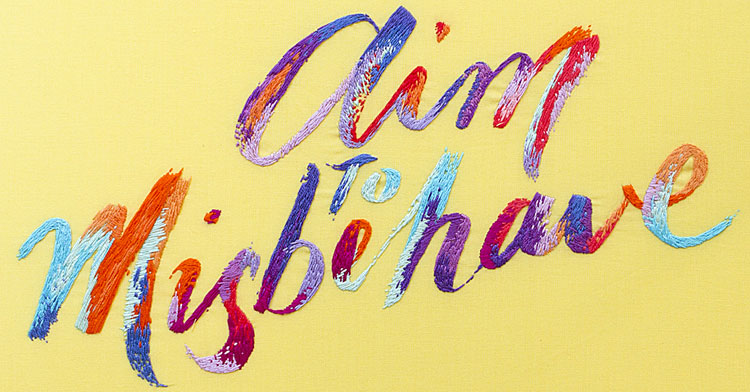 aim
To
Misbehave